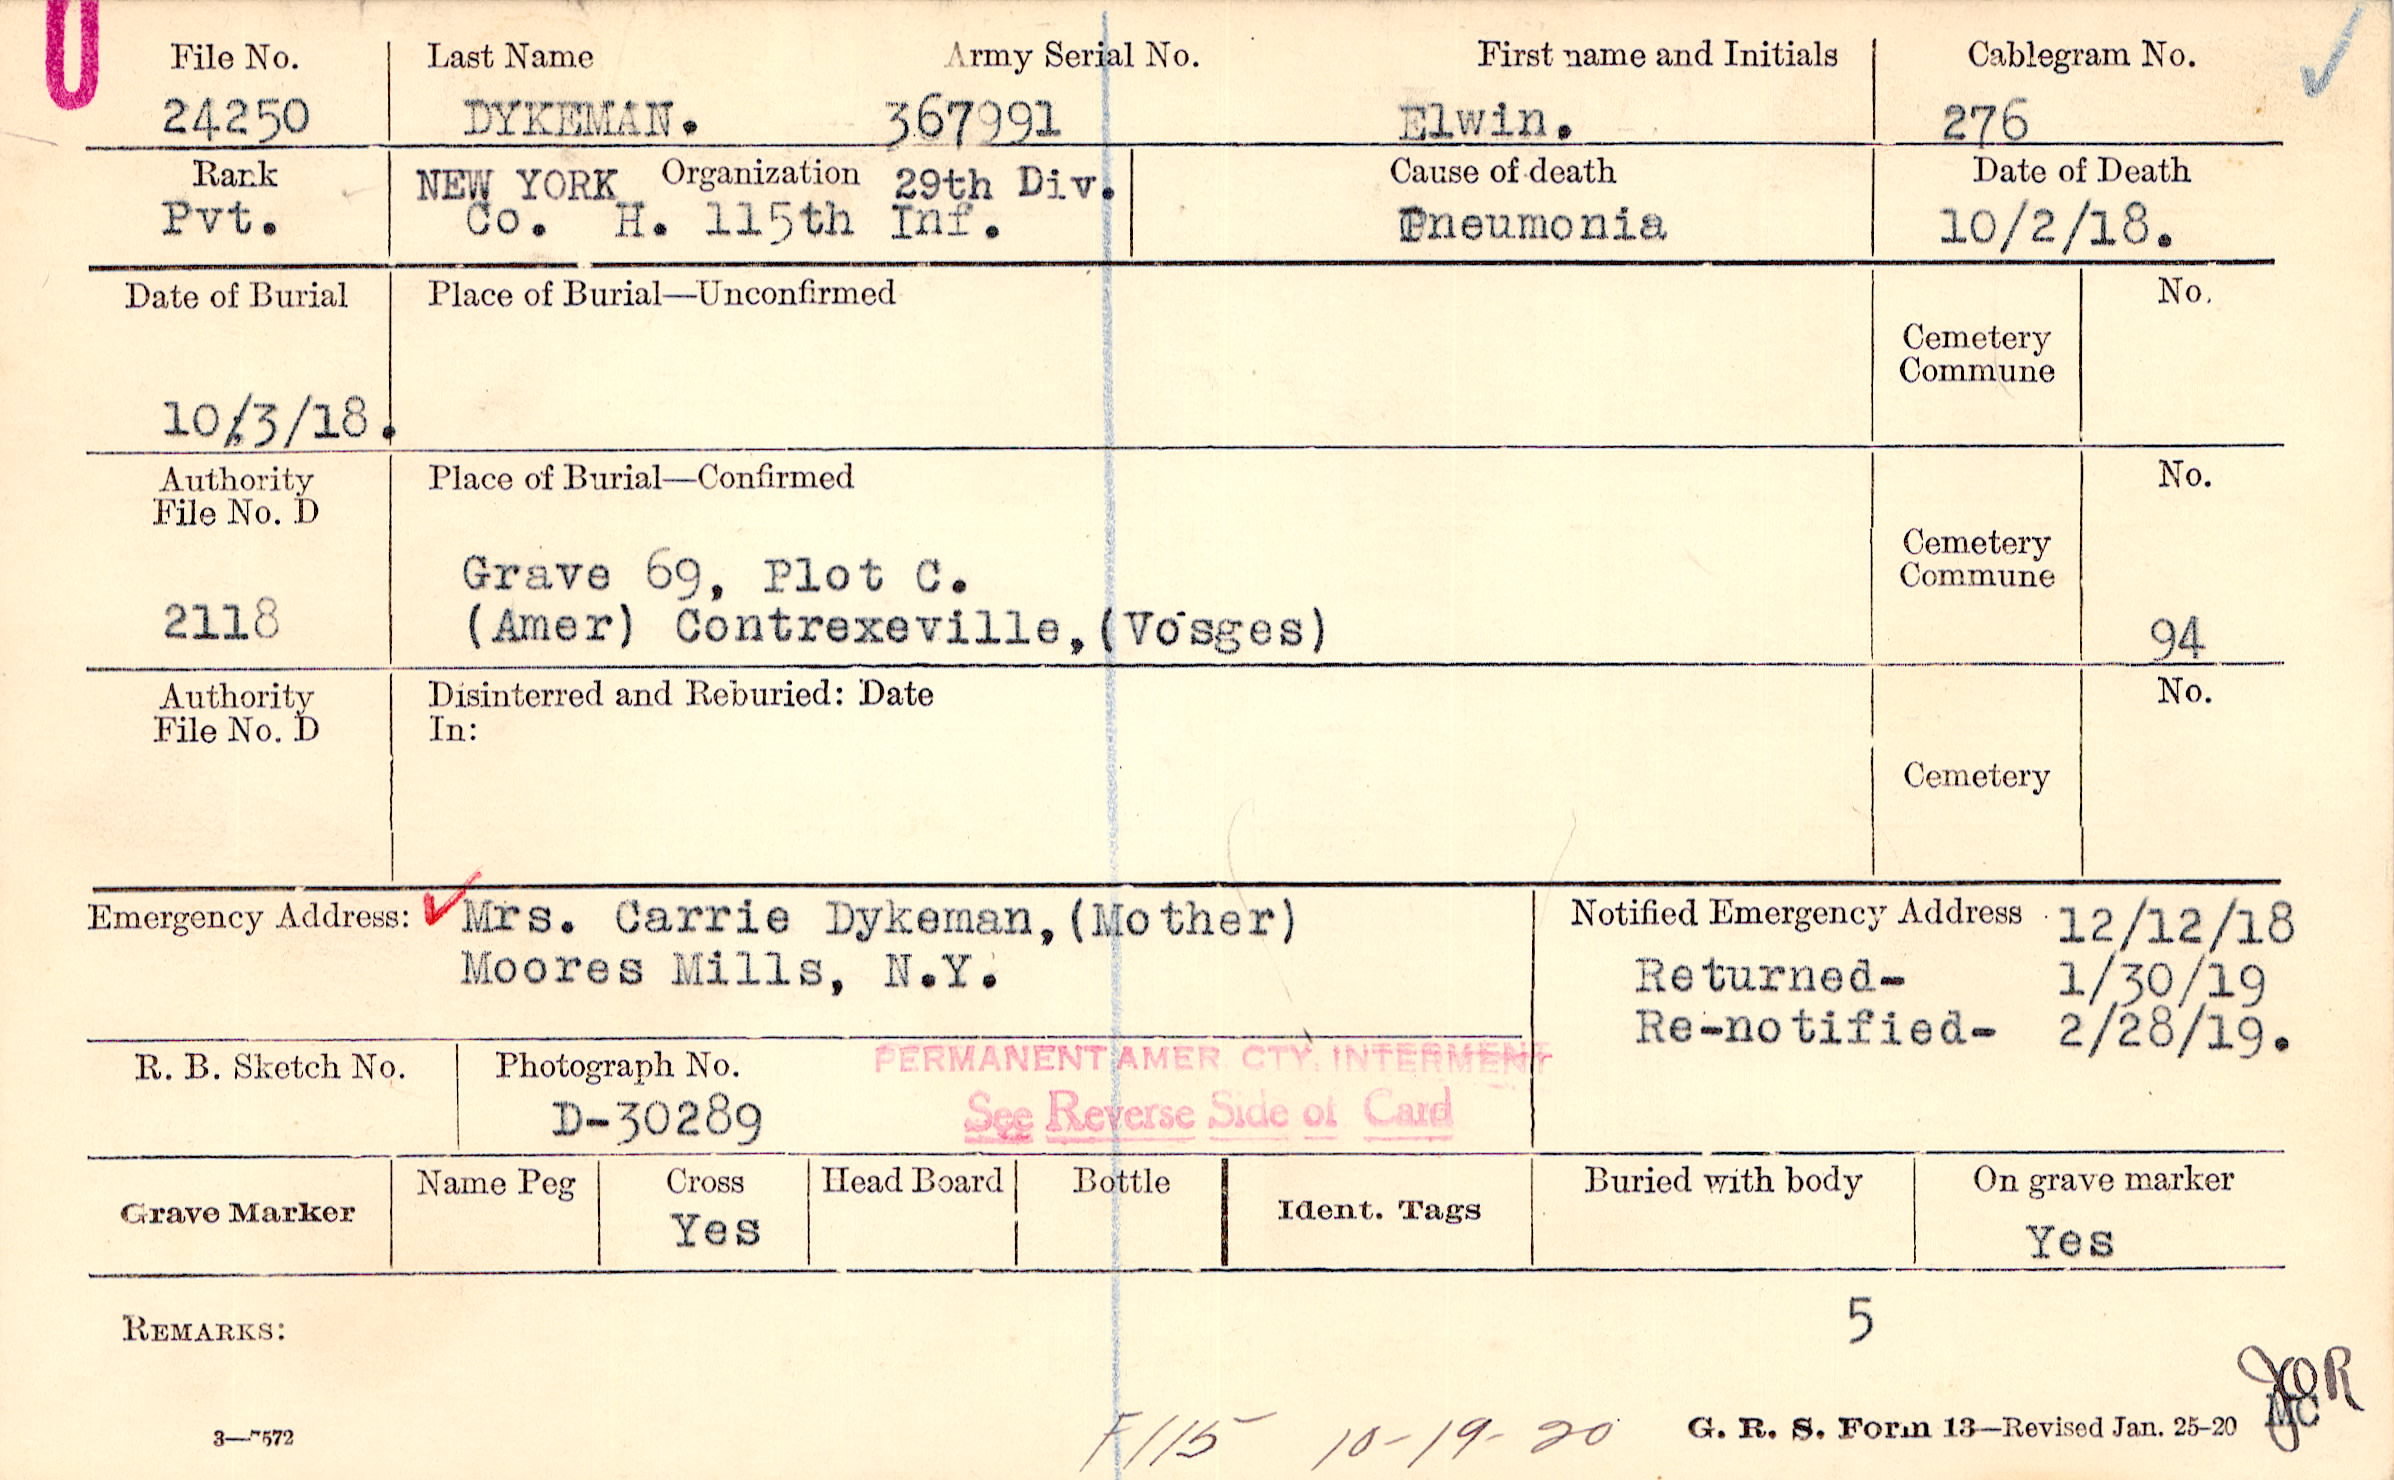 File No. Last Name Army Serial No. First name and Initials Cablegram No.
24250 DYKEMAN. 367991 Elwin. 276
Rank NEW YORK Organization 29th Div. Cause of death Date of Death
Pvt. Co. H. 115th Inf. Pneumonia 10/2/18.
Date of Burial Place of Burial—Unconfirmed No.
Cemetery
Commune
10/3/18.
Authority Place of Burial—Confirmed No.
File No. D
Cemetery
Commune
Grave 69, Plot C.
2118 (Amer) Contrexeville,(Vosges) 94
Authority Disinterred and Reburied: Date No.
File No. D In:
Cemetery
Emergency Address: Mrs. Carrie Dykeman,(Mother) Notified Emergency Address 12/12/18
Moores Mills, N.Y. Returned- 1/30/19
Re-notified- 2/28/19.
R. B. Sketch No. Photograph No. PERMANENT AMER. CTY. INTERMENT
D-30289 See Reverse Side of Card
Grave Marker Name Peg Cross Head Board Bottle Ident. Tags Buried with body On grave marker
Yes Yes
5
REMARKS:
JOR
MC
3—7572 F115 10-19-20 G. R. S. Form 13—Revised Jan. 25-20